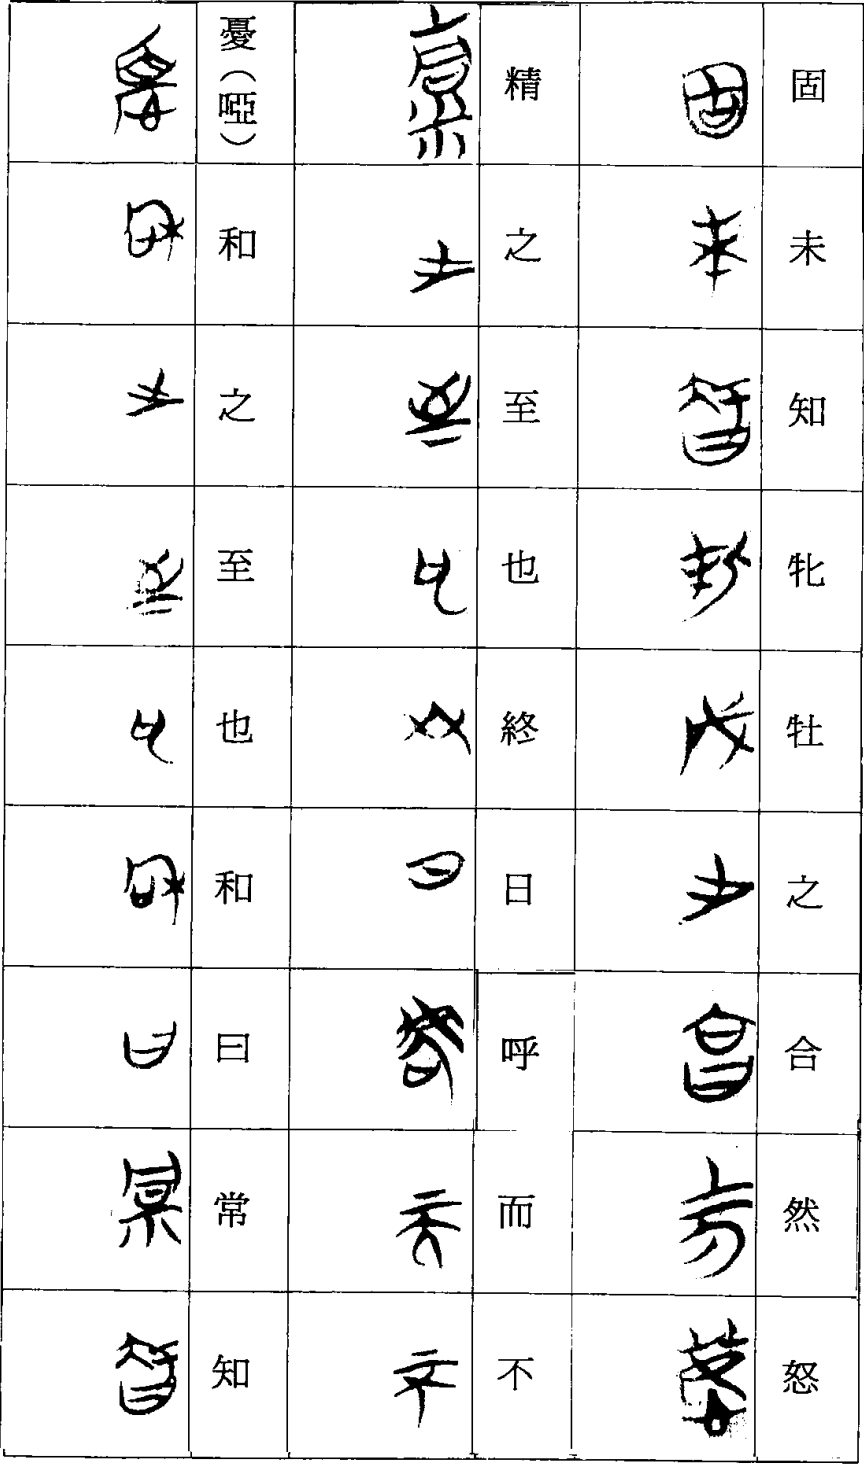 固未知牝牡之合然怒
精之至也終日呼而不
憂（啞）和之至也和曰常知